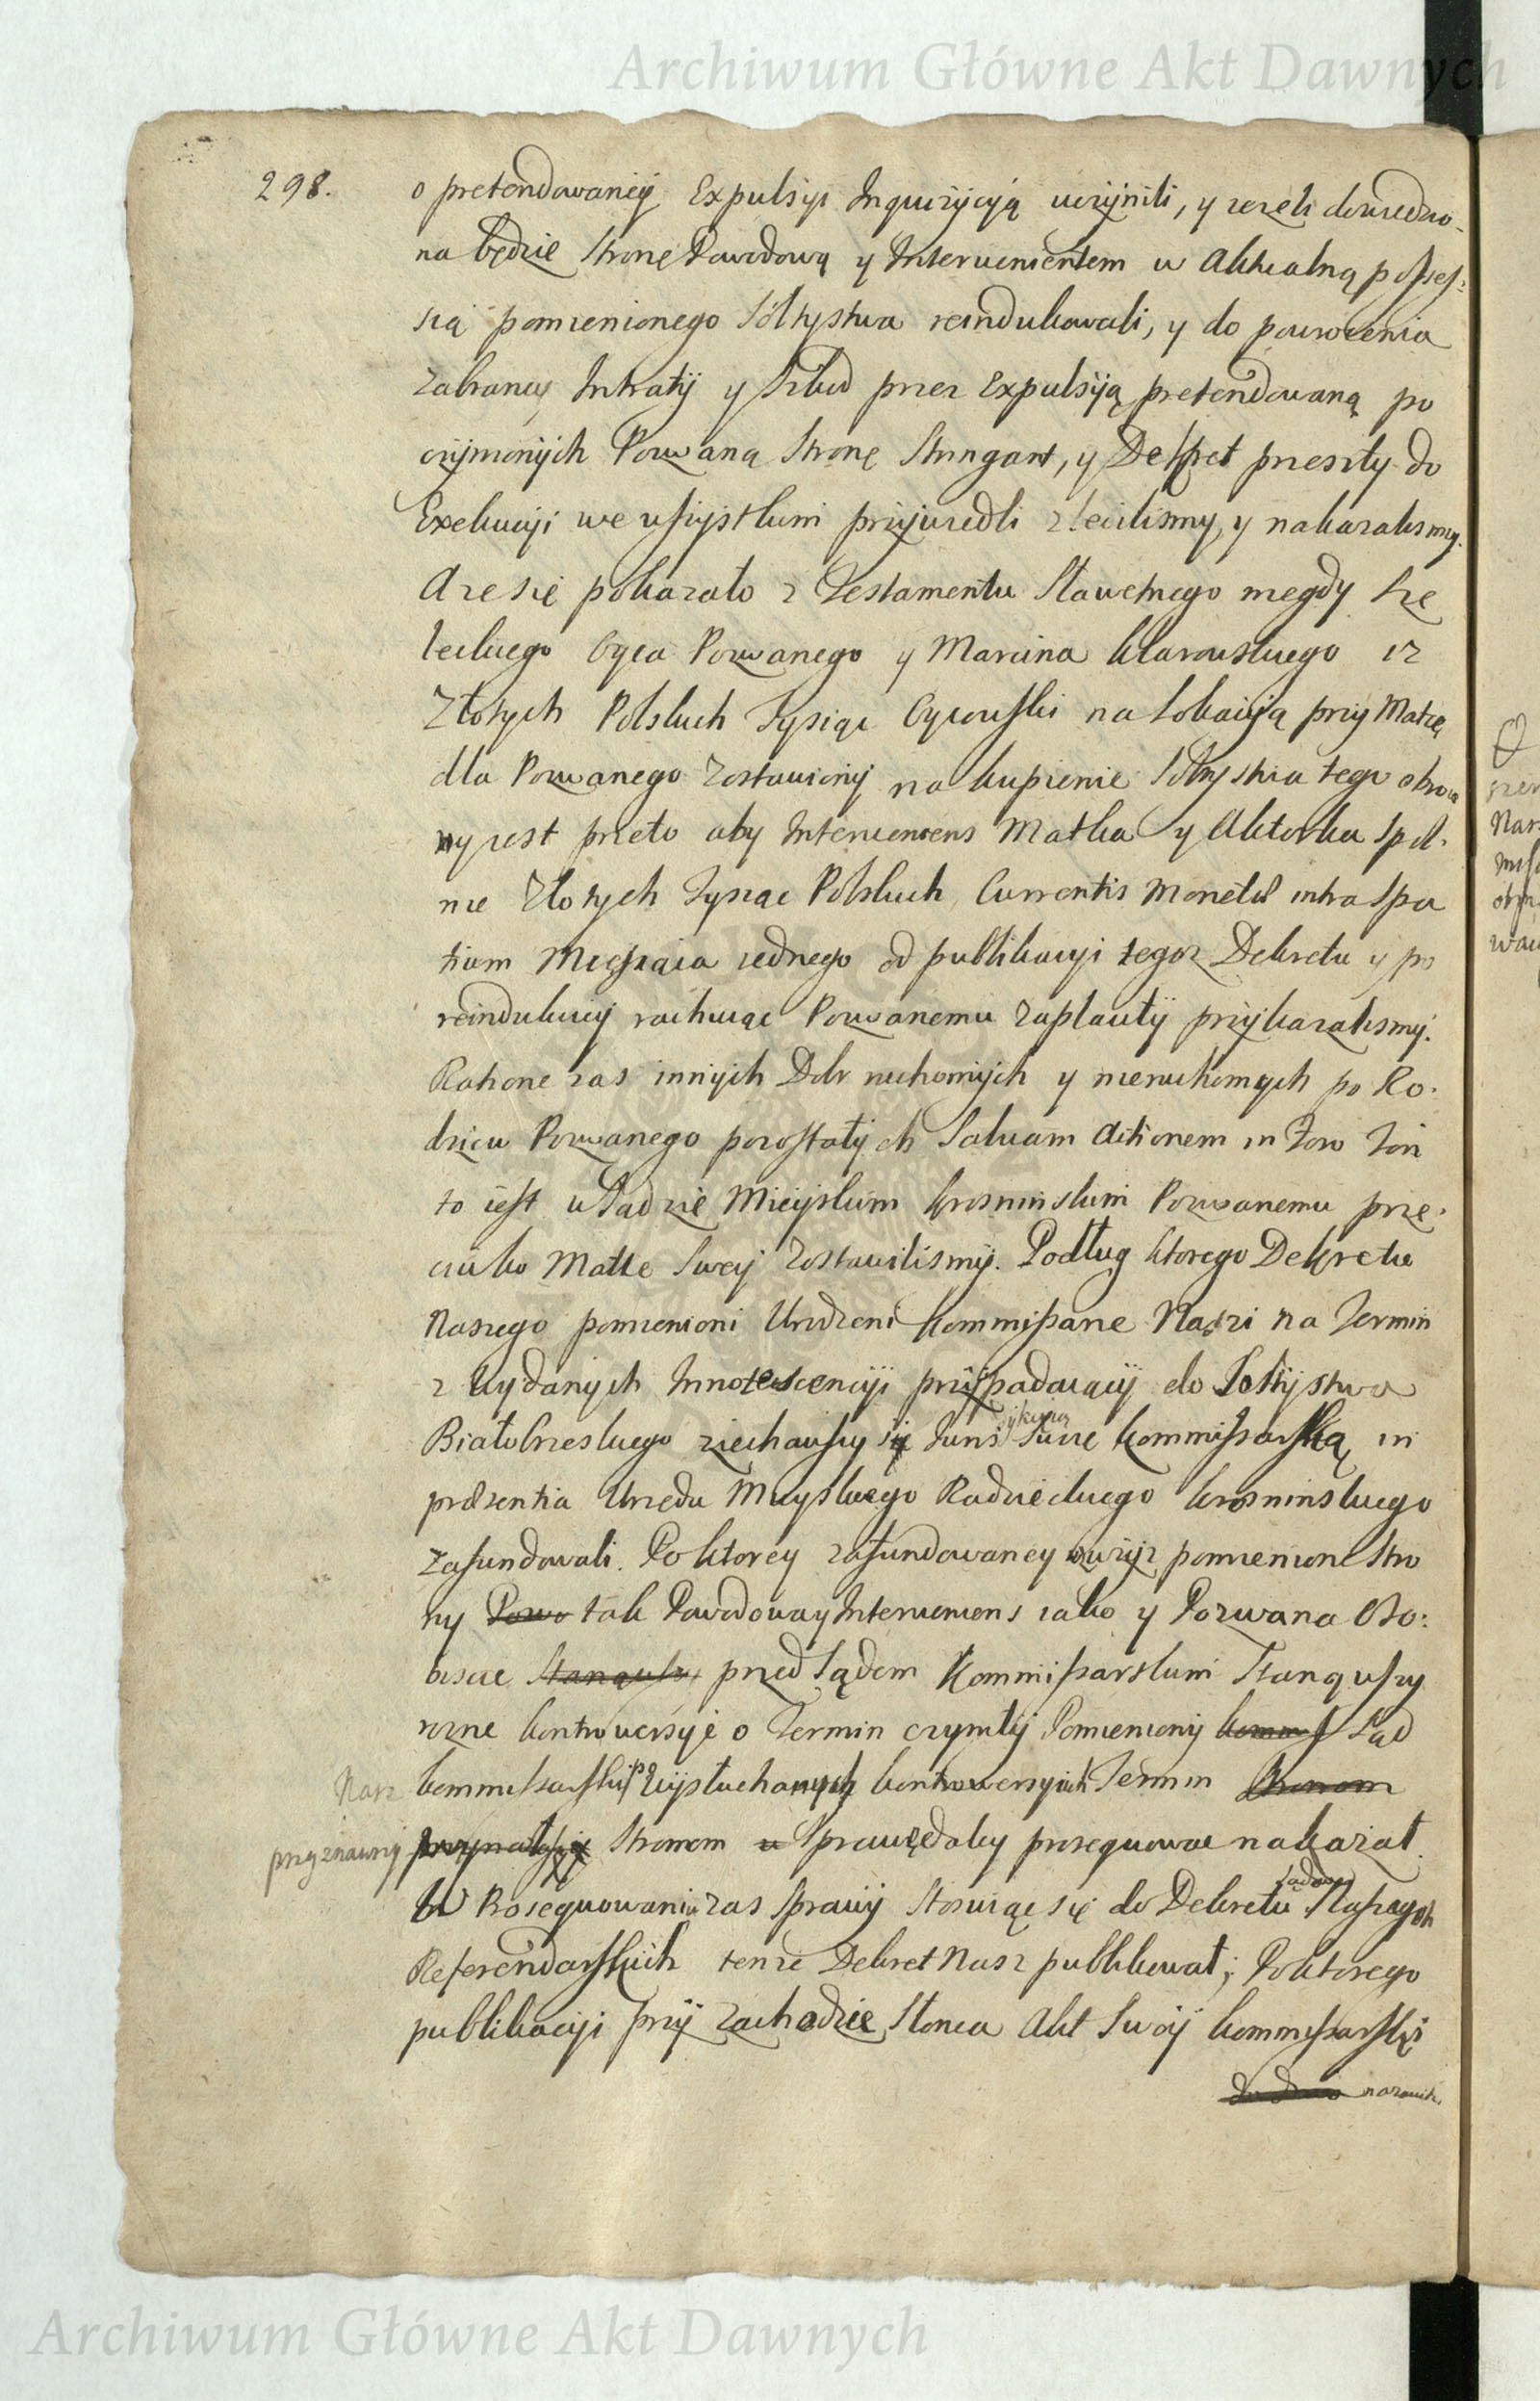 Archiwum Główne Akt Dawnych
298.
o pretendowaney Expulsyi Inquizycyą uczynili, y jeżeli dowiedzio-
na będzie stronę Powodową y Intervenientem w Aktualną possess-
sią pomienionego Sołtystwa reindukowali, y do powrocenia
zabraney Intraty y szkod przez Expulsyią pretendowaną po
czynionych Pozwaną stronę stringant, y Dekret przeszły do
Exekucyi we wszystkim przywiedli zlecilismy, y nakazalismy.
A ze się pokazało z Testamentu Sławetnego niegdy Sze
leckiego Oyca Pozwanego y Marcina Klarowskiego iz
Złotych Polskich Tysiąc Oycowski na Lokacyią przy Matce
dla Pozwanego zostawiony na kupienie Sołtystwa tego obroco
ny iest przeto aby Interveniens Matka y Aktorka spol-
nie Złotych Tysiąc Polskich Currentis Monetæ intra spa
tium Miesiąca iednego od publikacyi tegoz Dekretu y po
reindukcyi rachuiąc Pozwanemu zapłaciły przykazalismy.
Ratione zas innych Dobr ruchomych y nieruchomych po Ro-
dzicu Pozwanego pozostałych Salvam Actionem in Foro Fori
to iest w Sadzie Mieyskim Krosninskim Pozwanemu prze-
ciwko Matce swey zostawilismy. Podług ktorego Dekretu
Naszego pomienioni Urodzeni Kommissarze Naszi na Termin
z wydanych Innotescencyi przypadaiący do Sołtystwa
Białobrzeskiego ziechawszy się Juris sui Kommissarską in
præsentia Urzędu Mieyskiego Radzieckiego Krosninskiego
zafundowali. Po ktorey zafundowaney zwyz pomienione stro
ny Powo tak Powodowa y Interveniens iako y Pozwana Oso-
biscie Stanąwszy przed Sądem Kommissarskim Stanąwszy
rozne kontrowersye o Termin czyniły Pomieniony Komm Sąd
Nasz Kommissarski po wysłuchanych kontrowersyiach Termin Stronom
przyznawszy Stronom w Sprawę aby prosequowac nakazał.
sądow
W Prosequowaniu zas Sprawy stosuiąc się do Dekretu Naszych
Referendarskich tenze Dekret Nasz publikował; Po ktorego
publikacyi przy zachodzie Słonca Akt Swoy Kommissarski
Archiwum Główne Akt Dawnych